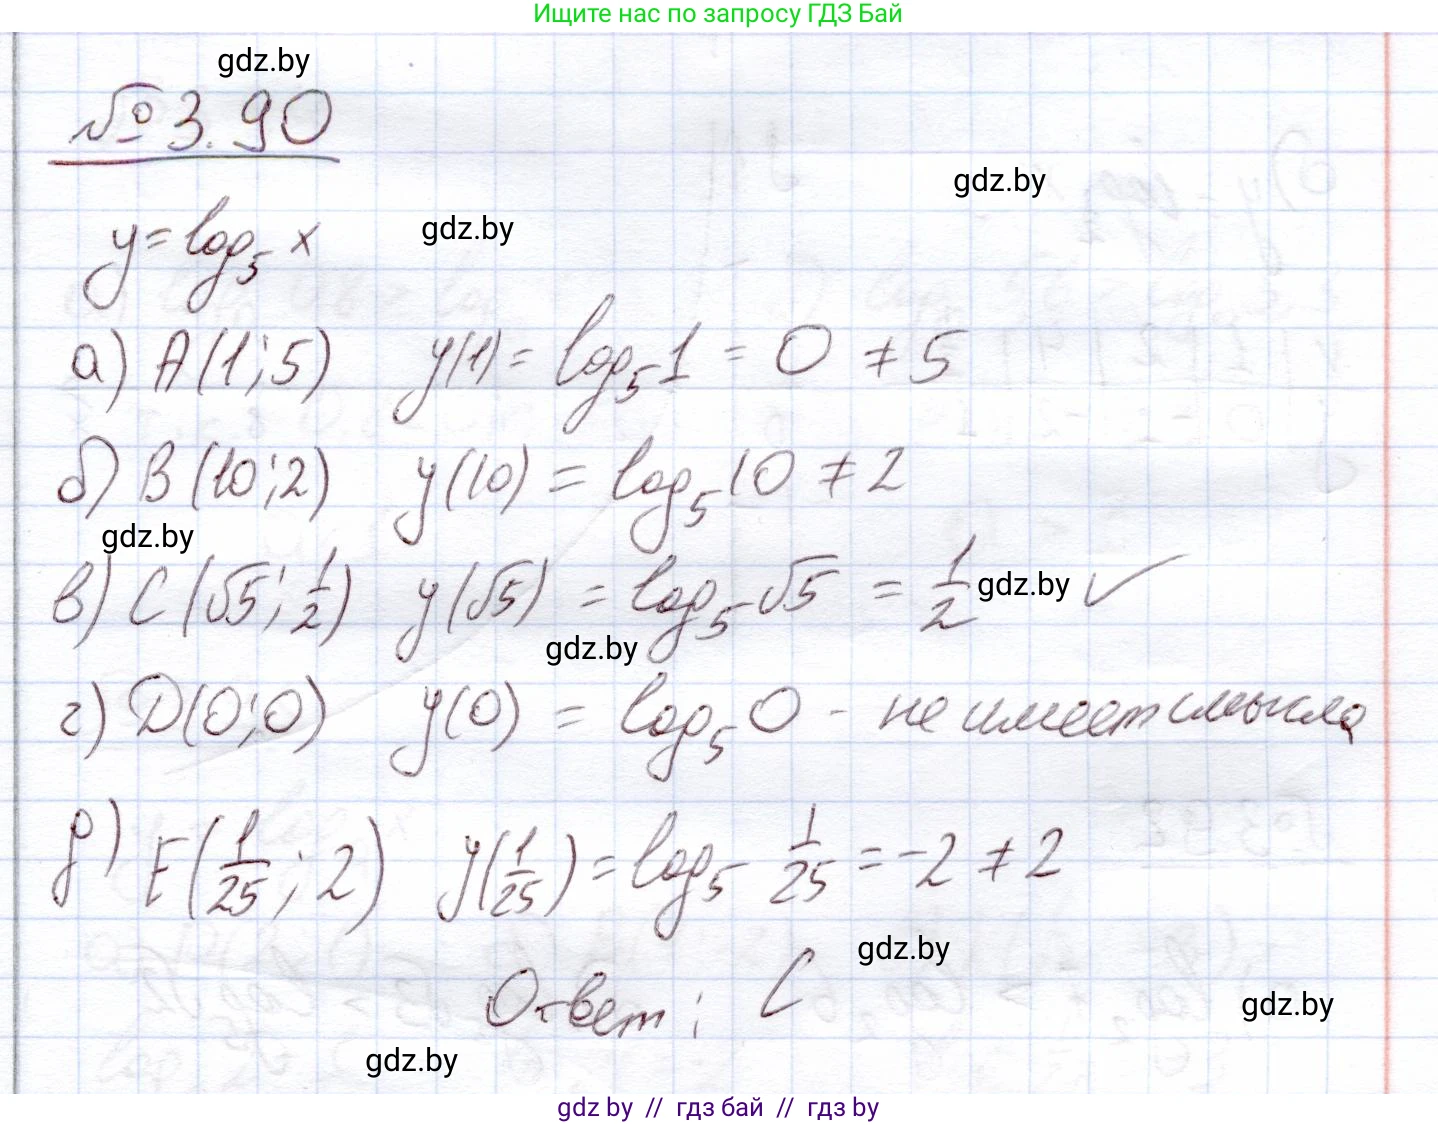 Ищите нас по запросу ГДЗ Бай
gdz.by
№ 3.90
gdz.by
y = log₅ x gdz.by
а) A(1; 5) y(1) = log₅1 = 0 ≠ 5
б) B(10; 2) y(10) = log₅10 ≠ 2
gdz.by
в) C(√5; 1/2) y(√5) = log₅√5 = 1/2 gdz.by ✓
gdz.by
г) D(0; 0) y(0) = log₅0 - не имеет смысла
д) E(1/25; 2) y(1/25) = log₅ 1/25 = -2 ≠ 2
gdz.by
Ответ: C
gdz.by
gdz.by
gdz by // гдз бай // гдз by